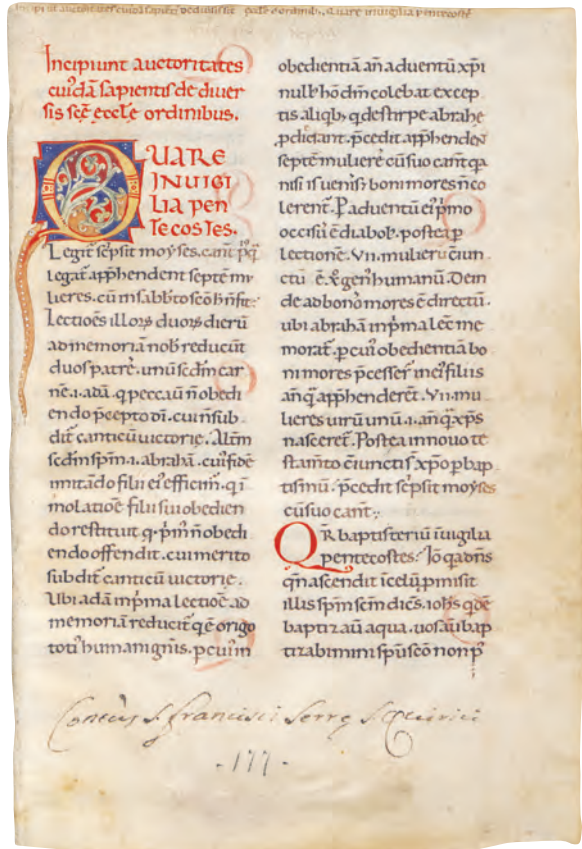 Incipiunt auctoritates
cuiꝰdā sapientis de diuer
sis scē ecclē ordinibus.
QUARE
IN UIGI
LIA pen
tecostes.
Legit̄ scͥpsit moẏses. canī pꝰq̄
legāt app̄hendent septē mu
lieres. cū in sabb̄to scō h̄n̄ fit.
Lectiōēs illoꝝ duoꝝ dierū
ad memoriā nob̄ reducūt
duos patrē. unū sc̄dm car
nē .i. adā. q peccaū n̄ obedi
endo p̄cepto dī. cui n̄ sub
dit̄ canticū uictorie. Altm̄
sc̄dm sp̄m .i. abrahā. cuiꝰ fidē
imitādo filii eiꝰ efficim̄. q i
molatiōē filii sui obedien
do restituit q p̄m n̄ obedi
endo offendit. cui merito
subdit̄ canticū uictorie.
Ubi adā in p̄ma lectiōē ad
memoriā reducit̄ q ē origo
totiꝰ humani gn̄is. p cuiꝰ in
obedientiā an̄ aduentū xp̄i
nullꝰ hō dm̄ colebat excep
tis aliqb; q de stirpe abrahe
ꝓdierant. p̄cedit app̄henden̄
septē mulierē cū suo cant̄ qa
nisi is uenisꝫ boni mores n̄ co
lerent̄. P aduentū eiꝰ p̄mo
occisiꝰ ē diabolꝰ. postea p
lectionē. VII. mulierū ciun
ctū ē. ꝫ genꝰ humanū. Dein
de ad bonoꝰ mores ē directū.
ubi abrahā in p̄ma lec̄ me
morat̄. p cuiꝰ obedientiā bo
ni mores p̄cesser̄ in eiꝰ filiis
an̄ q̄ app̄henderēt. VII. mu
lieres uirū unū .i. an̄ q̄ xp̄s
nasceret̄. Postea in nouo te
stam̄to ciunctiſ xp̄o p bap
tismū. p̄cedit scͥpsit moẏses
cū suo cant̄.
QR baptisteriū ī uigilia
pentecostes. Iō qa dn̄s
qn̄ ascendit ī celū. p̄misit
illis sp̄m scm̄ dicēs. ioh̄s qdē
baptizaū aqua. uos aū bap
tizabimini sp̄u scō non p̄
Conuꝰ S. Francisci Serrę S. Quirici
- 177 -